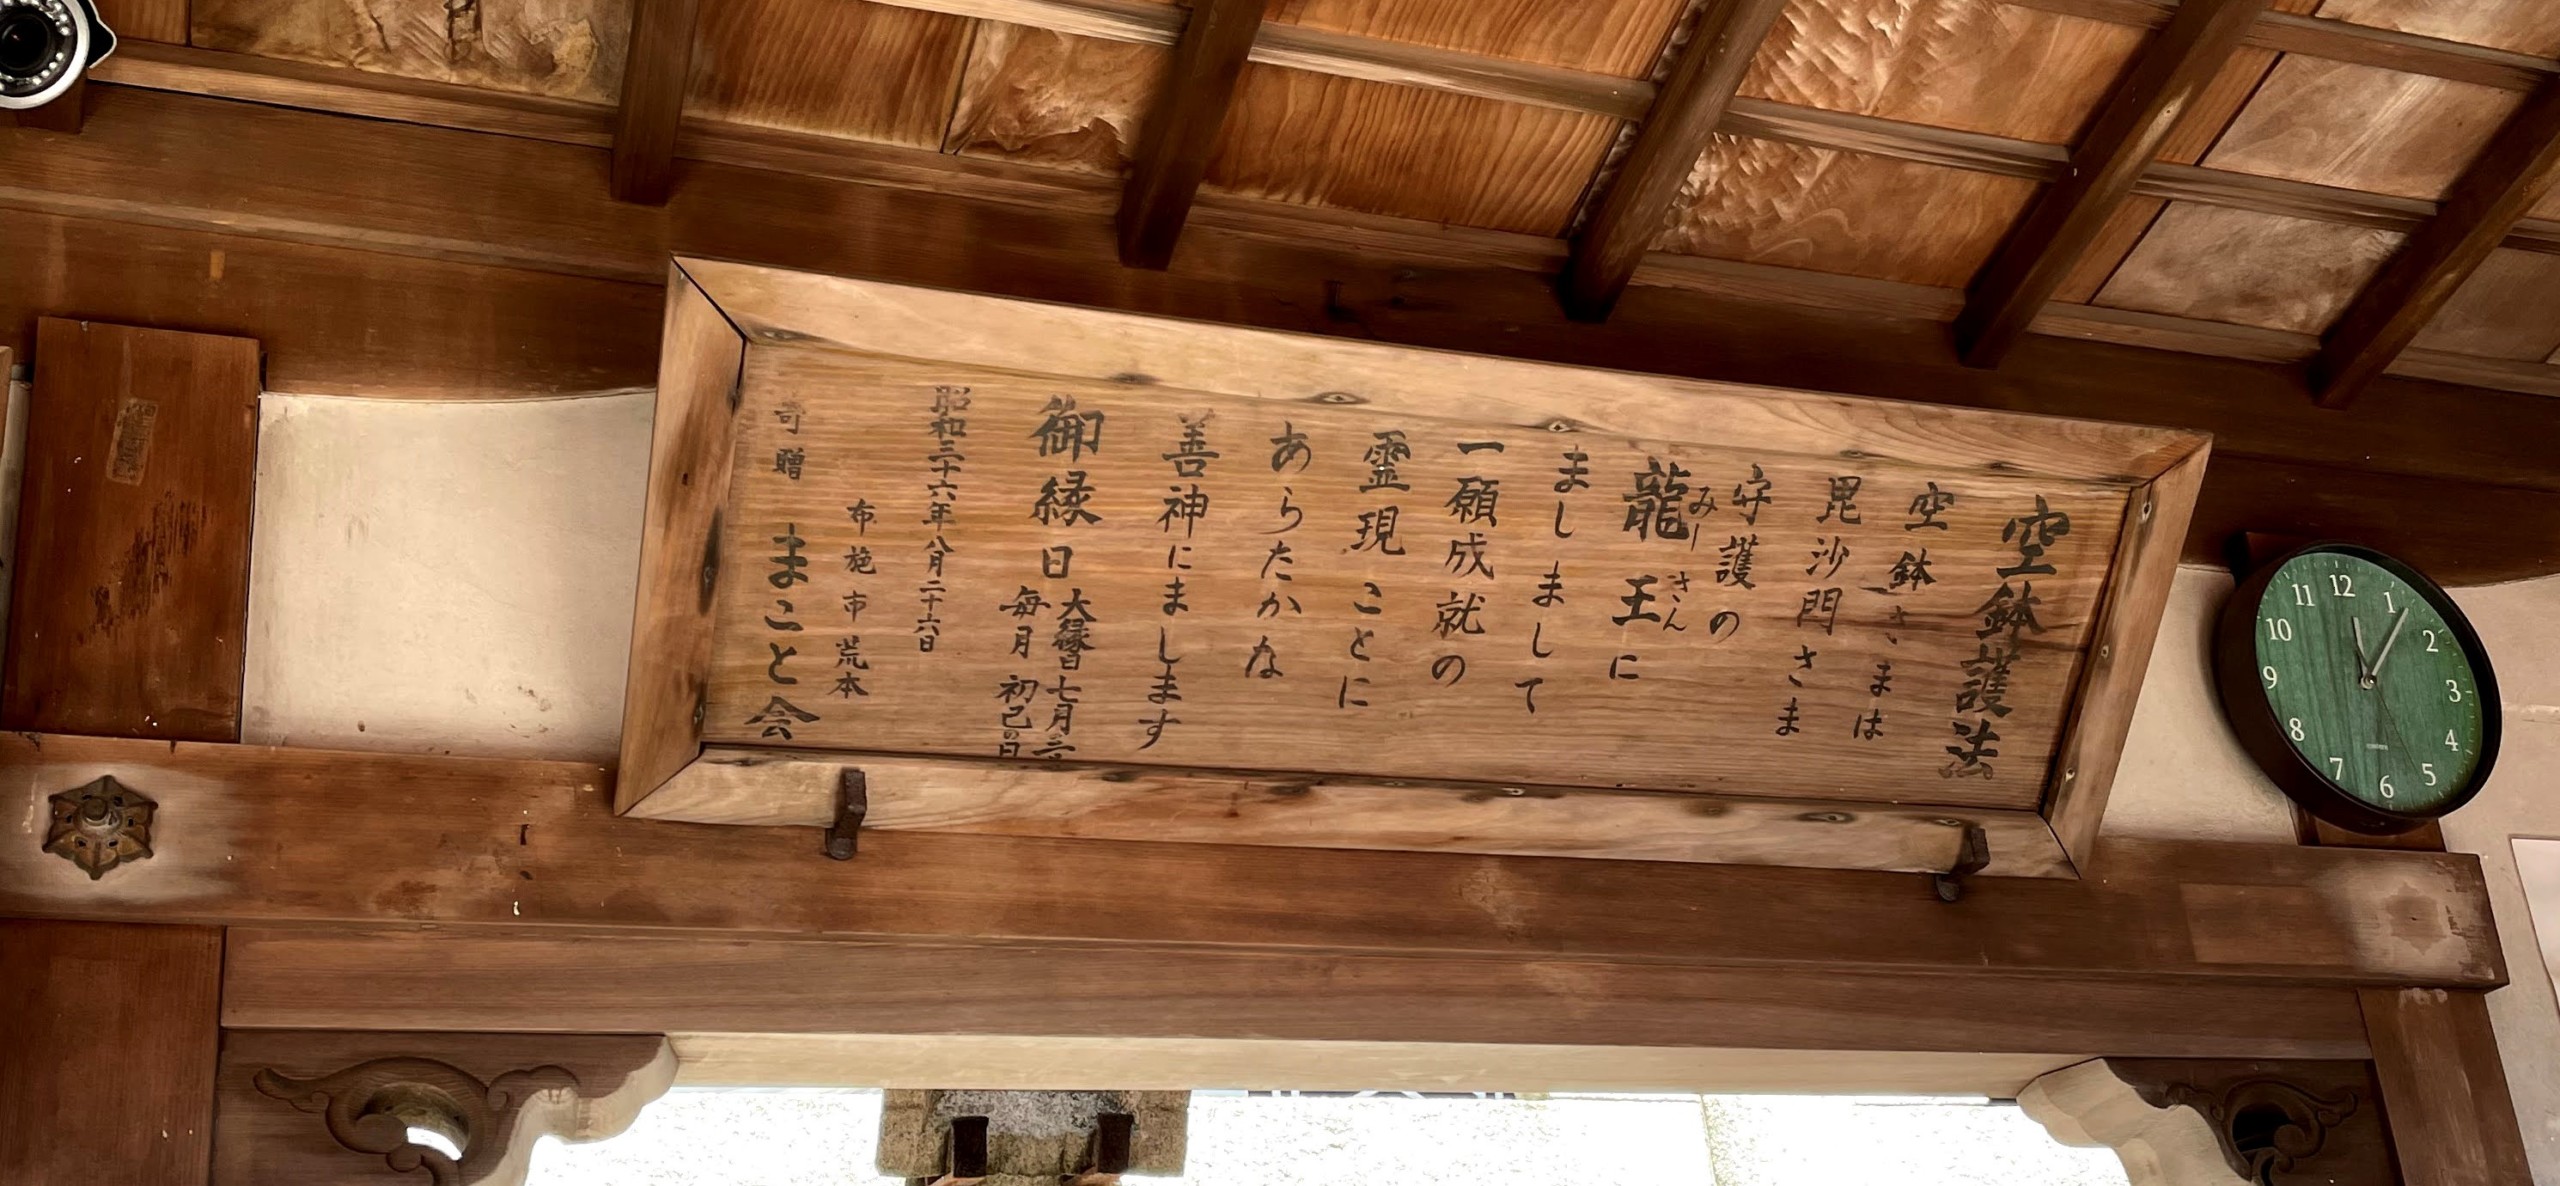 空鉢護法
空鉢さまは
毘沙門さま
守護の
龍王に
みーさん
ましまして
一願成就の
霊現ことに
あらたかな
善神にまします
御縁日
大縁日七月
毎月初己の日
昭和三十六年八月二十六日
布施市荒本
寄贈 まこと会
12
1
2
3
4
5
6
7
8
9
10
11